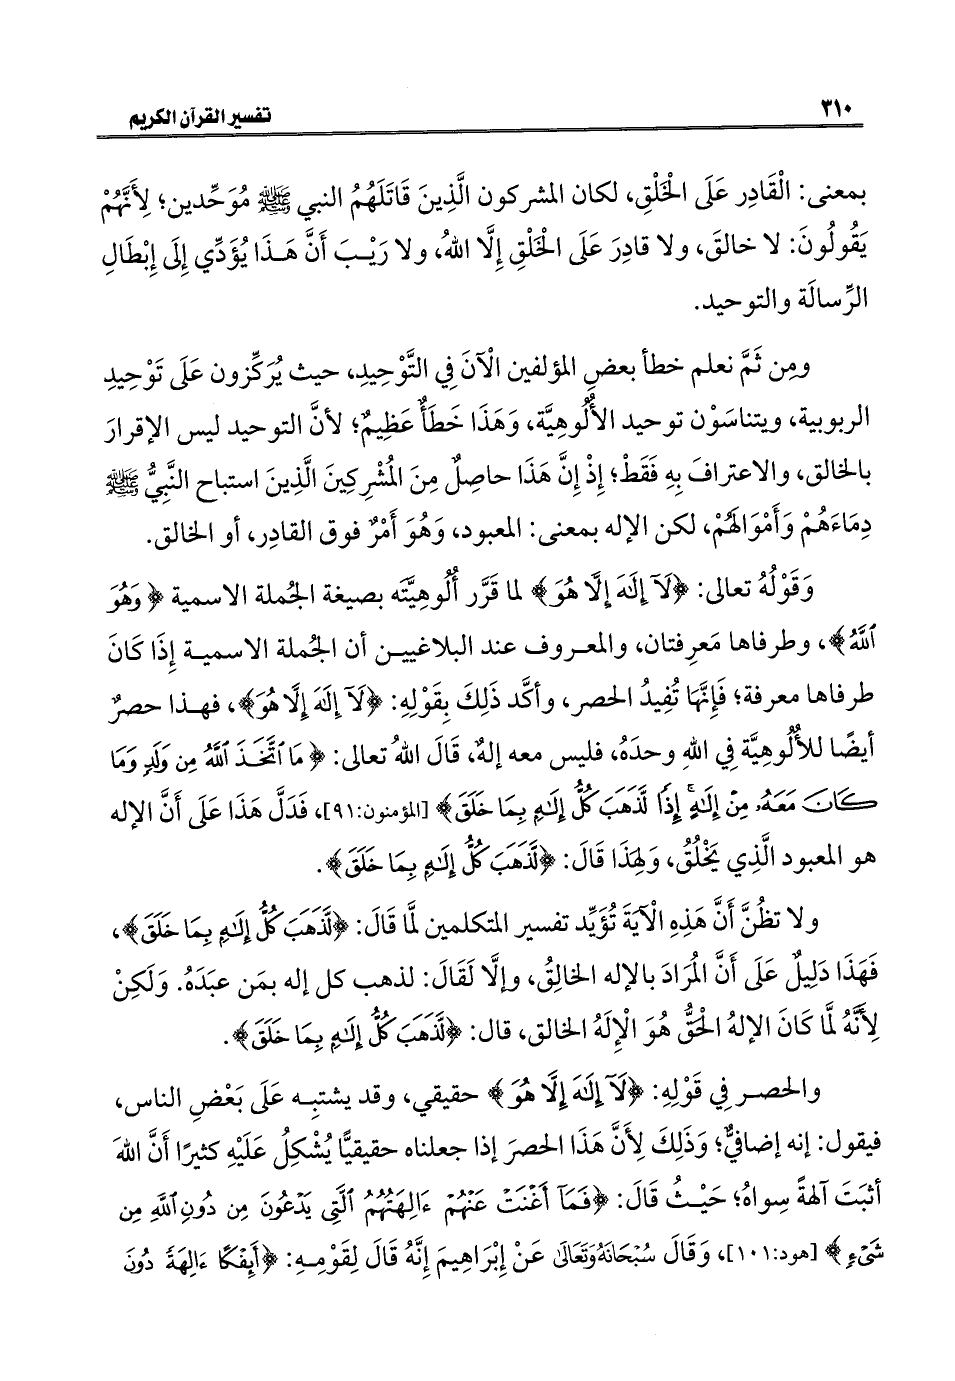 ٣١٠
تفسير القرآن الكريم
بمعنى: الْقَادِر عَلَى الْخَلْقِ، لكان المشركون الَّذِينَ قَاتَلَهُمُ النبي ﷺ مُوَحِّدين؛ لِأَنَّهُمْ
يَقُولُونَ: لا خالقَ، ولا قادِرَ عَلَى الْخَلْقِ إِلَّا اللهُ، ولا رَيْبَ أَنَّ هَذَا يُؤَدِّي إِلَى إِبْطَالِ
الرِّسالَة والتوحيد.
ومِن ثَمَّ نعلم خطأ بعضِ المؤلفين الْآنَ فِي التَّوْحِيدِ، حيث يُرَكِّزون عَلَى تَوْحِيدِ
الربوبية، ويتناسَوْن توحيد الأُلُوهِيَّة، وَهَذَا خَطَأٌ عَظِيمٌ؛ لأنَّ التوحيد ليس الإقرارَ
بالخالق، والاعترافَ بِهِ فَقَطْ؛ إِذْ إِنَّ هَذَا حاصِلٌ مِنَ المُشْرِكِينَ الَّذِينَ استباح النَّبِيُّ ﷺ
دِمَاءَهُمْ وَأَمْوَالَهُمْ، لكن الإله بمعنى: المعبود، وَهُوَ أَمْرٌ فوق القادِر، أو الخالق.
وَقَوْلُهُ تعالى: ﴿لَآ إِلَٰهَ إِلَّا هُوَ﴾ لما قَرَّر أُلُوهِيَّتَه بصيغة الجُملة الاسمية ﴿وَهُوَ
ٱللَّهُ﴾، وطرفاها مَعرِفتان، والمعروف عند البلاغيين أن الجُملة الاسمية إِذَا كَانَ
طرفاها معرفة؛ فَإِنَّهَا تُفِيدُ الحصر، وأكَّد ذَلِكَ بِقَوْلِهِ: ﴿لَآ إِلَٰهَ إِلَّا هُوَ﴾، فهذا حصرٌ
أيضًا للأُلُوهِيَّة فِي اللهِ وحدَهُ، فليس معه إلهٌ، قَالَ اللهُ تعالى: ﴿مَا ٱتَّخَذَ ٱللَّهُ مِن وَلَدٍ وَمَا
كَانَ مَعَهُۥ مِنْ إِلَٰهٍ ۚ إِذًا لَّذَهَبَ كُلُّ إِلَٰهٍۭ بِمَا خَلَقَ﴾ [المؤمنون:٩١]، فَدَلَّ هَذَا عَلَى أَنَّ الإله
هو المعبود الَّذِي يَخْلُقُ، وَلِهَذَا قَالَ: ﴿لَّذَهَبَ كُلُّ إِلَٰهٍۭ بِمَا خَلَقَ﴾.
ولا تظُنَّ أَنَّ هَذِهِ الْآيَةَ تُؤَيِّد تفسير المتكلمين لَمَّا قَالَ: ﴿لَّذَهَبَ كُلُّ إِلَٰهٍۭ بِمَا خَلَقَ﴾،
فَهَذَا دَلِيلٌ عَلَى أَنَّ المُرَادَ بالإله الخالِقُ، وإلَّا لَقَالَ: لذهب كل إله بمَن عبَدَهُ. وَلَكِنْ
لِأَنَّهُ لَمَّا كَانَ الإلهُ الْحَقُّ هُوَ الْإِلَهُ الخالق، قال: ﴿لَّذَهَبَ كُلُّ إِلَٰهٍۭ بِمَا خَلَقَ﴾.
والحصر فِي قَوْلِهِ: ﴿لَآ إِلَٰهَ إِلَّا هُوَ﴾ حقيقي، وقد يشتبِه عَلَى بَعْضِ الناس،
فيقول: إنه إضافيٌّ؛ وَذَلِكَ لِأَنَّ هَذَا الحصرَ إذا جعلناه حقيقيًّا يُشْكِلُ عَلَيْهِ كثيرًا أَنَّ اللهَ
أثبَتَ آلهةً سواهُ؛ حَيْثُ قَالَ: ﴿فَمَآ أَغْنَتْ عَنْهُمْ ءَالِهَتُهُمُ ٱلَّتِى يَدْعُونَ مِن دُونِ ٱللَّهِ مِن
شَىْءٍ﴾ [هود:١٠١]، وَقَالَ سُبْحَانَهُ وَتَعَالَى عَنْ إِبْرَاهِيمَ إِنَّهُ قَالَ لِقَوْمِهِ: ﴿أَئِفْكًا ءَالِهَةً دُونَ